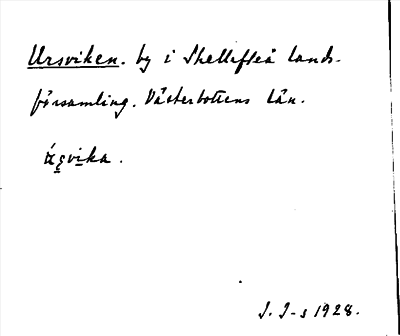 Ursviken. by i Skellefteå lands-
församling. Västerbottens län.
J. J-s 1928.